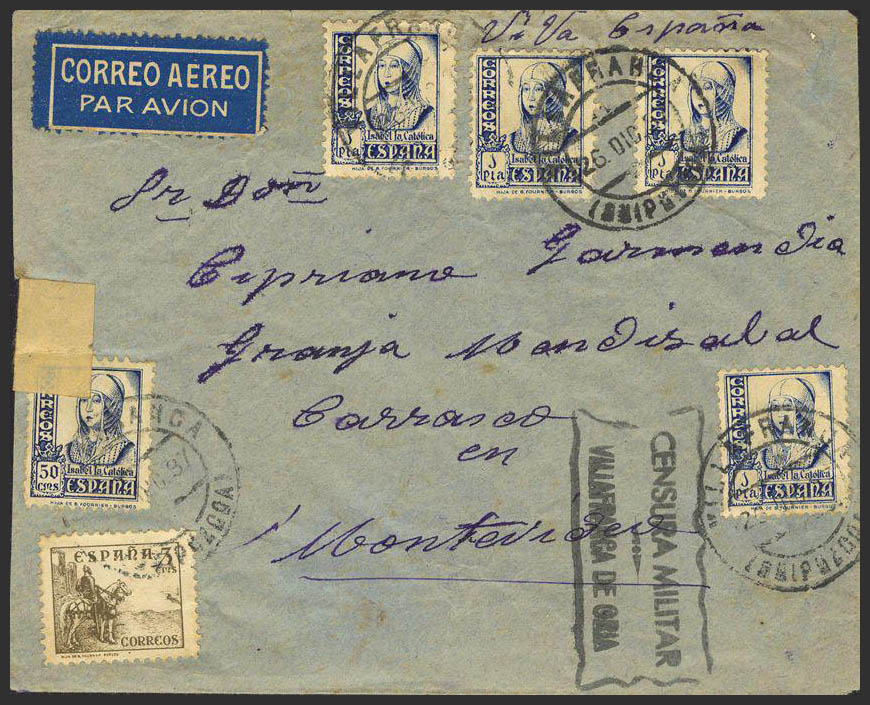 CORREO AEREO
PAR AVION
ViVa España
CORREOS
Isabel la Católica
1 Pta ESPAÑA
HIJA DE B. FOURNIER - BURGOS
CORREOS
Isabel la Católica
1 Pta ESPAÑA
HIJA DE B. FOURNIER - BURGOS
CORREOS
Isabel la Católica
1 Pta ESPAÑA
HIJA DE B. FOURNIER - BURGOS
26 DIC
Sr Don
Cipriano Garmendia
Granja Mendisabal
Carrasco
en
Montevideo
CORREOS
Isabel la Católica
50 cms ESPAÑA
HIJA DE B. FOURNIER - BURGOS
CORREOS
Isabel la Católica
1 Pta ESPAÑA
CENSURA MILITAR
VILLAFRANCA DE ORIA
ESPAÑA
CORREOS